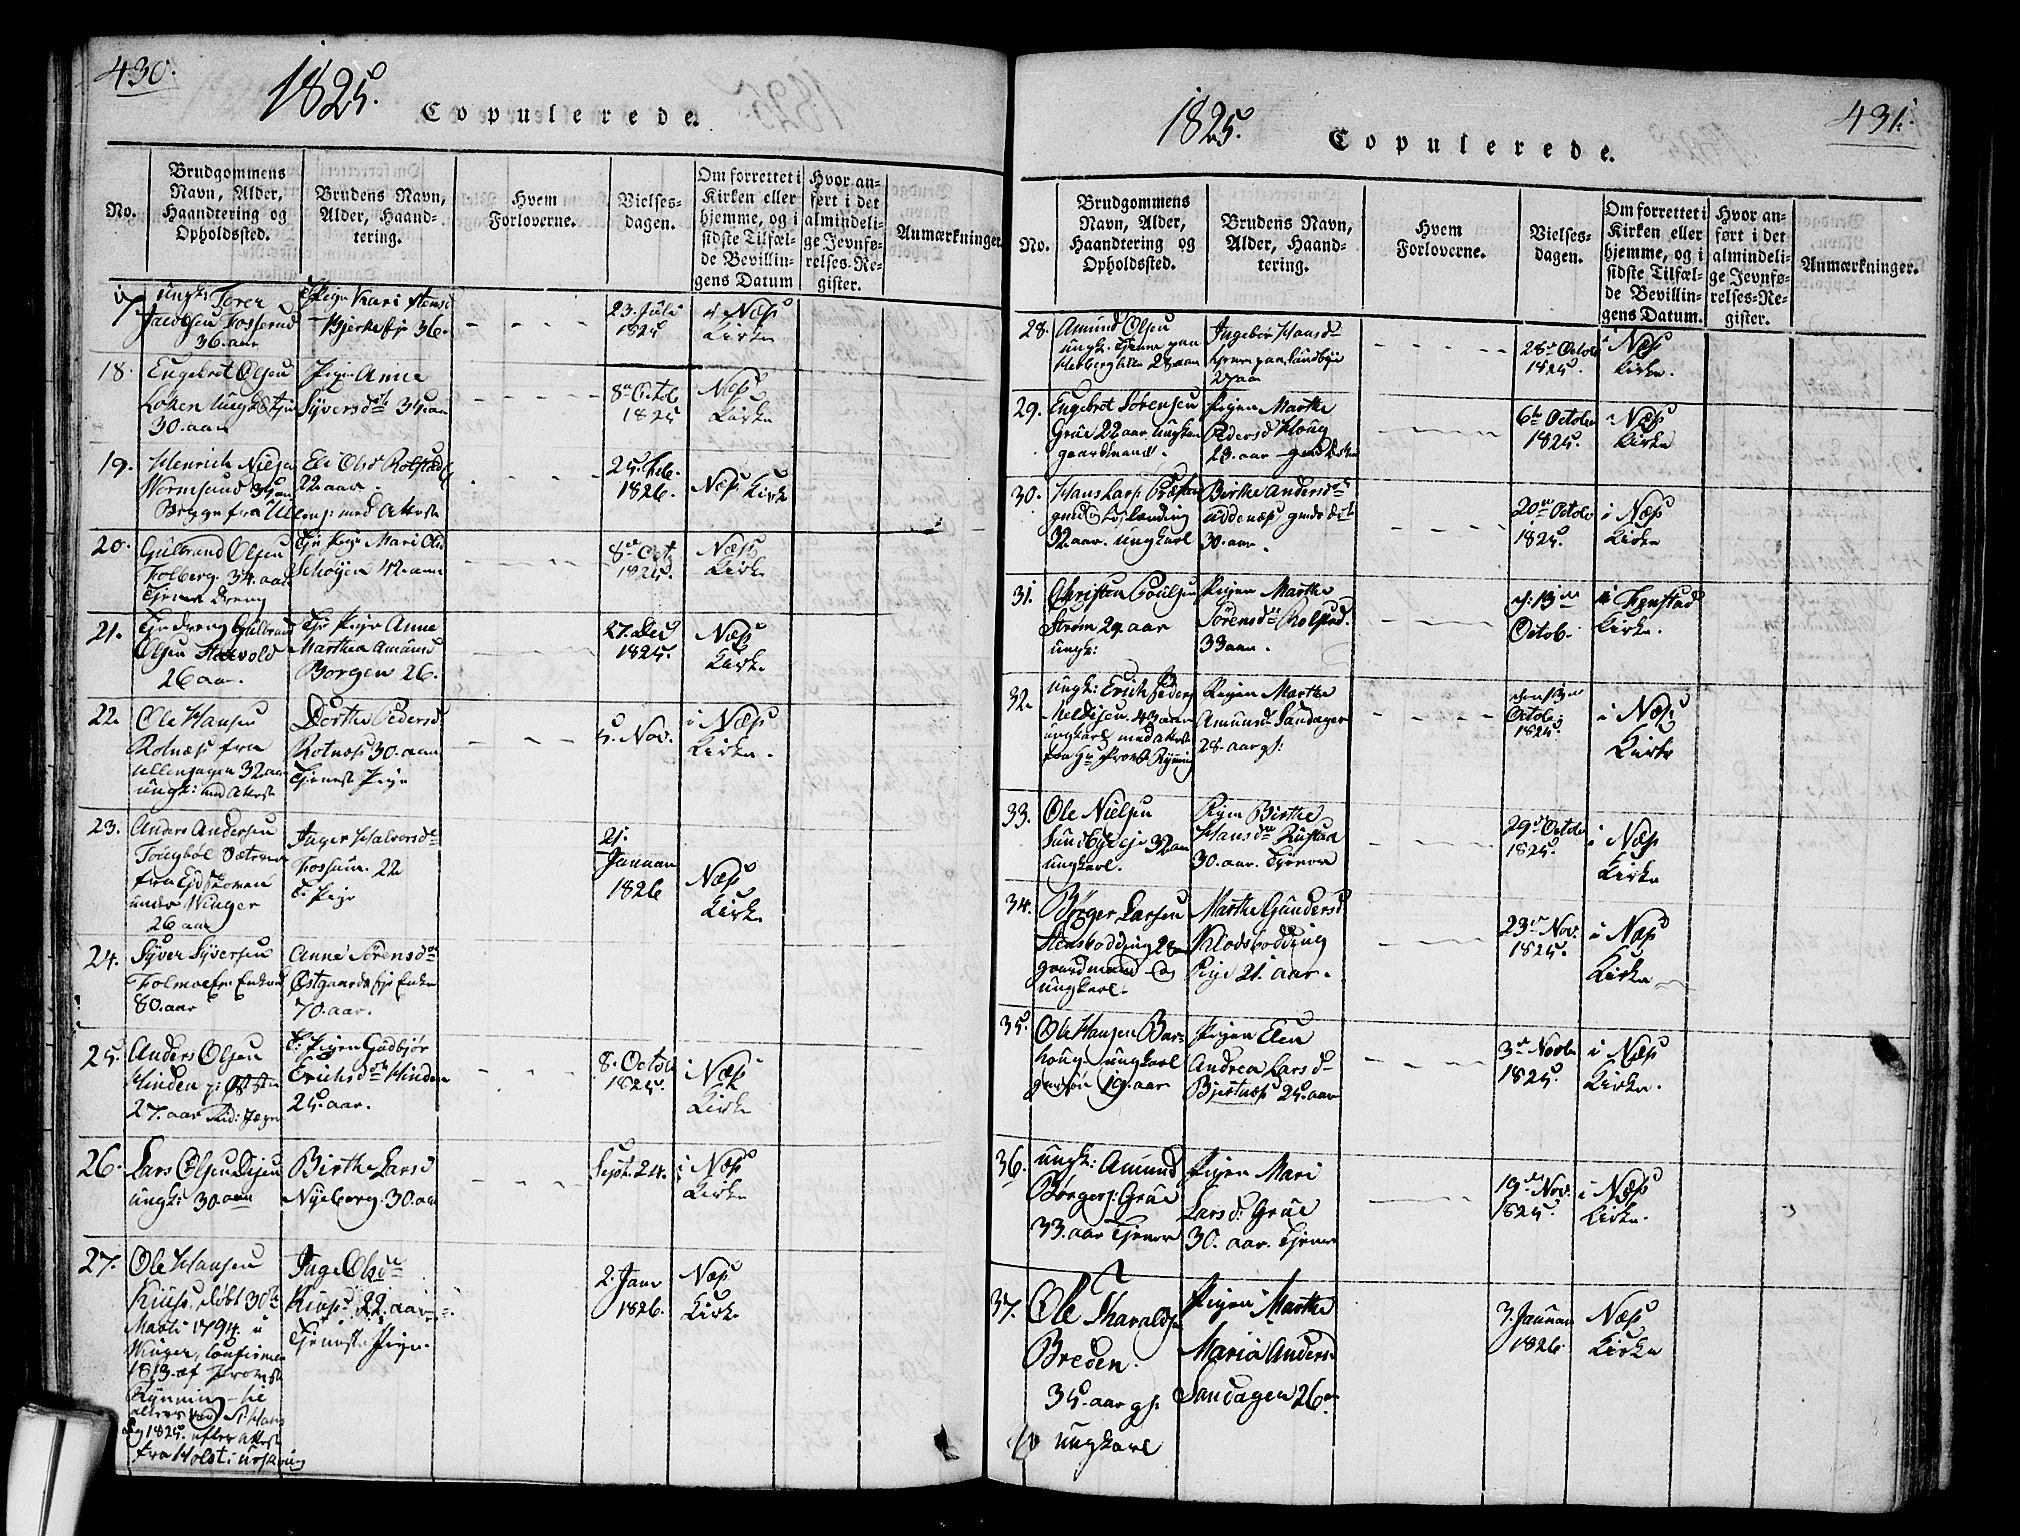 430.
1825.
Copulerede.
No.
Brudgommens
Navn, Alder,
Haandtering og
Opholdssted.
Brudens Navn,
Alder, Haand-
tering.
Hvem
Forloverne.
Vielses-
dagen.
Om forrettet i
Kirken eller
hjemme, og i
sidste Tilfæl-
de Bevillin-
gens Datum
Hvor an-
ført i det
almindeli-
ge Jevnfø-
relses-Re-
gister.
Anmærkninger.
17
ungk: Torer
Jacobsen Fosserud
36. aar
Pige Kari
Bjerke 36.
23. Juli
1825
i Næs
Kirke
18.
Engebret Olsen
Løken ungk
30. aar
Pigen Anne
Syversd 35 aar
8de Octob
1825
Næs
Kirke
19.
Henrich Niels
Wormsund 34 aar
Begge fra Ullens: med Attest
Eli Olsd Rolstad
22 aar.
25. Feb.
1826.
Næs Kirk
20.
Gulbrand Olsen
Folberg. 34. aar
Tjener Dreng
Tje Pige Mari Ols
Schøyen 42. aar
8de Oct
1825.
Næs
Kirke
21.
Tje dreng Gulbrand
Olsen
26 aar.
Tje Pige Anne
Marthea Amund
Borgen 26.
27. Dec
1825.
Næs
Kirke
22.
Ole Hansen
Rotnæs fra
Ullensagen 32 aar
ungk: med Attest
Dorthe Pedersd
Rotnæs 30. aar
Tjenest Pige
5. Nov.
i Næs
Kirke.
23.
Anders Andersen
Tougbøl Sætren
fra Eidskoven
under Winger
26 aar
Inger Halvorsd
Fossum. 22
T: Pige
21.
Januari
1826
Næs
Kirke
24.
Syver Syversen
Folmoe Enkem
80. aar
Anne Sørensd
Østgaard Enke
70. aar.
25.
Anders Olsen
Hinden
27. aar
T: Pigen Gudbjør
Erichsd Hinden
25. aar.
8. Octob
1825.
i Næs
Kirke
26.
Lars Olsen
ungk: 30 aar
Birthe Larsd
Nyeberg 30. aar
Sept. 24.
i Næs
Kirke
27.
Ole Hansen
Kius, døbt 30te
Marti 1794. i
Winger, Confirmer
1813. af Provst
Rynning
1825. efter Attest
fra Holst i Urskoug
Inge Olsd
Kius 22. aar
Tjenest. Pige.
2. Janu
1826.
Næs
Kirke
431.
1825.
Copulerede.
No.
Brudgommens
Navn, Alder,
Haandtering og
Opholdssted.
Brudens Navn,
Alder, Haand-
tering.
Hvem
Forloverne.
Vielses-
dagen.
Om forrettet i
Kirken eller
hjemme, og i
sidste Tilfæl-
de Bevillin-
gens Datum.
Hvor an-
ført i det
almindeli-
ge Jevnfø-
relses-Re-
gister.
Anmærkninger.
28.
Amund Olsen
ungk. Tjener paa
28 aar
Ingebor Hansd
Tjener paa Sundbye
27 aar
28de Octob
1825.
i Næs
Kirke.
29.
Engebret Sørensen
Grue 22 aar ungkar
gaardmand.
Pigen Marthe
Pedersd Houg
23. aar
6te October
1825.
i Næs
Kirke
30.
Hans Lars
32 aar. ungkarl
Birthe Andersd
Uddenæs
30. aar.
20de Octob
1825.
i Næs
Kirke
31.
Christen Poulsen
Strøm 29. aar
ungk:
Pigen Marthe
Sørensd Rolstad.
33 aar.
d: 13de
Octob.
Fenstad
Kirke.
32.
ungk: Erich Peders
43 aar
ungkarl med attest
fra Hr Provst Rynning
Pigen Marthe
Amunsd Sandager
28. aar
den 13de
Octob.
1825.
i Næs
Kirke
33.
Ole Nielsen
Sundbye 32 aar
ungkarl.
Pigen Birthe
Hansd Rustad
30. aar. Tjener
29de Octob
1825.
i Næs
Kirke
34.
Børger Larsen
Stensbodding 28
gaardmand og
ungkarl.
Marthe Gundersd
Klodsbodding
Pige 21. aar.
23de Nov.
1825.
i Næs
Kirke
35.
Ole Hansen Bar-
houg ungkarl
19. aar
Pigen Elen
Andrea Larsd
Bjertnæs 25. aar
3de Novb
1825.
i Næs
Kirke.
36.
ungk: Amund
Børgers: Grue
33. aar Tjener
Pigen Mari
Larsd: Grue
30. aar. Tjener
19de Nov.
1825.
i Næs
Kirke.
37.
Ole Haralds
Breden.
35. aar
ungkarl
Pigen Marthe
Maria Anders
Sandagen 26
3. Januari
1826.
Næs
Kirke